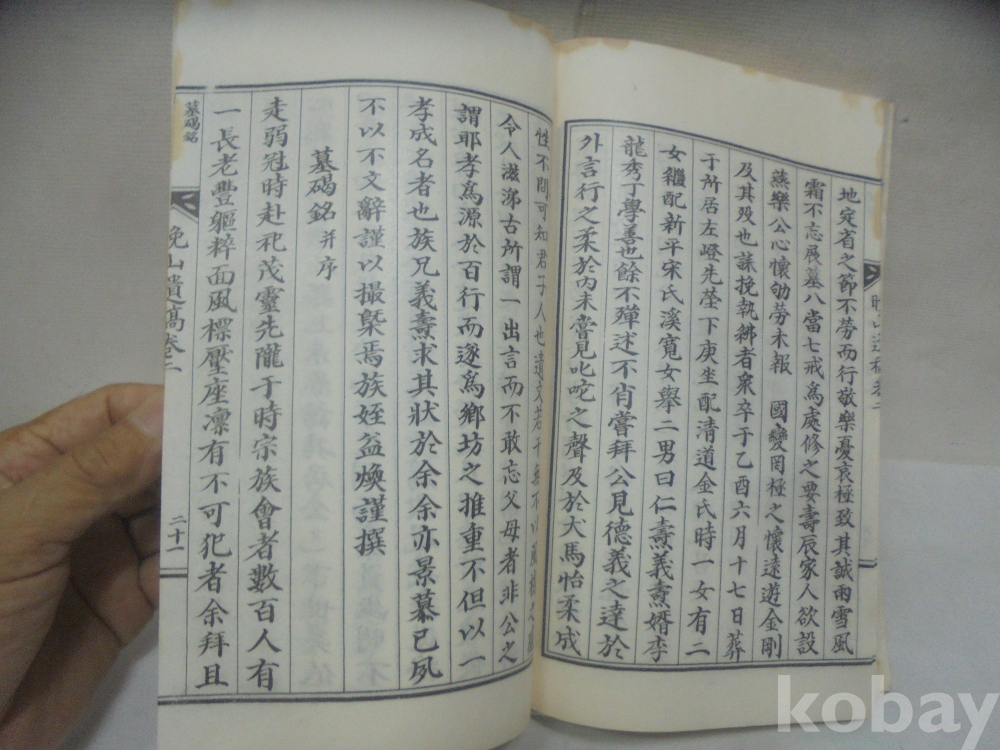 地定省之節不勞而行敬樂憂哀極致其誠雨雪風
霜不忘展墓八當七戒爲處修之要壽辰家人欲設
燕樂公心懷劬勞未報 國變罔極之懷遠遊金剛
及其歿也誄挽執紼者衆卒于乙酉六月十七日葬
于所居左嶝先塋下庚坐配清道金氏時一女有二
女繼配新平宋氏溪寬女舉二男曰仁壽義燾婿李
龍秀丁學善也餘不殫述不肖嘗拜公見德義之達於
外言行之柔於內未嘗見叱咜之聲及於犬馬怡柔成
性不問可知君子人也遺文若干
令人滋涕古所謂一出言而不敢忘父母者非公之
謂耶孝爲源於百行而遂爲鄉坊之推重不但以一
孝成名者也族兄義燾求其狀於余余亦景慕已夙
不以不文辭謹以撮槩焉族姪益煥謹撰
墓碣銘 并序
走弱冠時赴祀茂靈先隴于時宗族會者數百人有
一長老豊軀粹面風標壓座凜有不可犯者余拜且
墓碣銘
晚山遺稿卷二
二十一
kobay